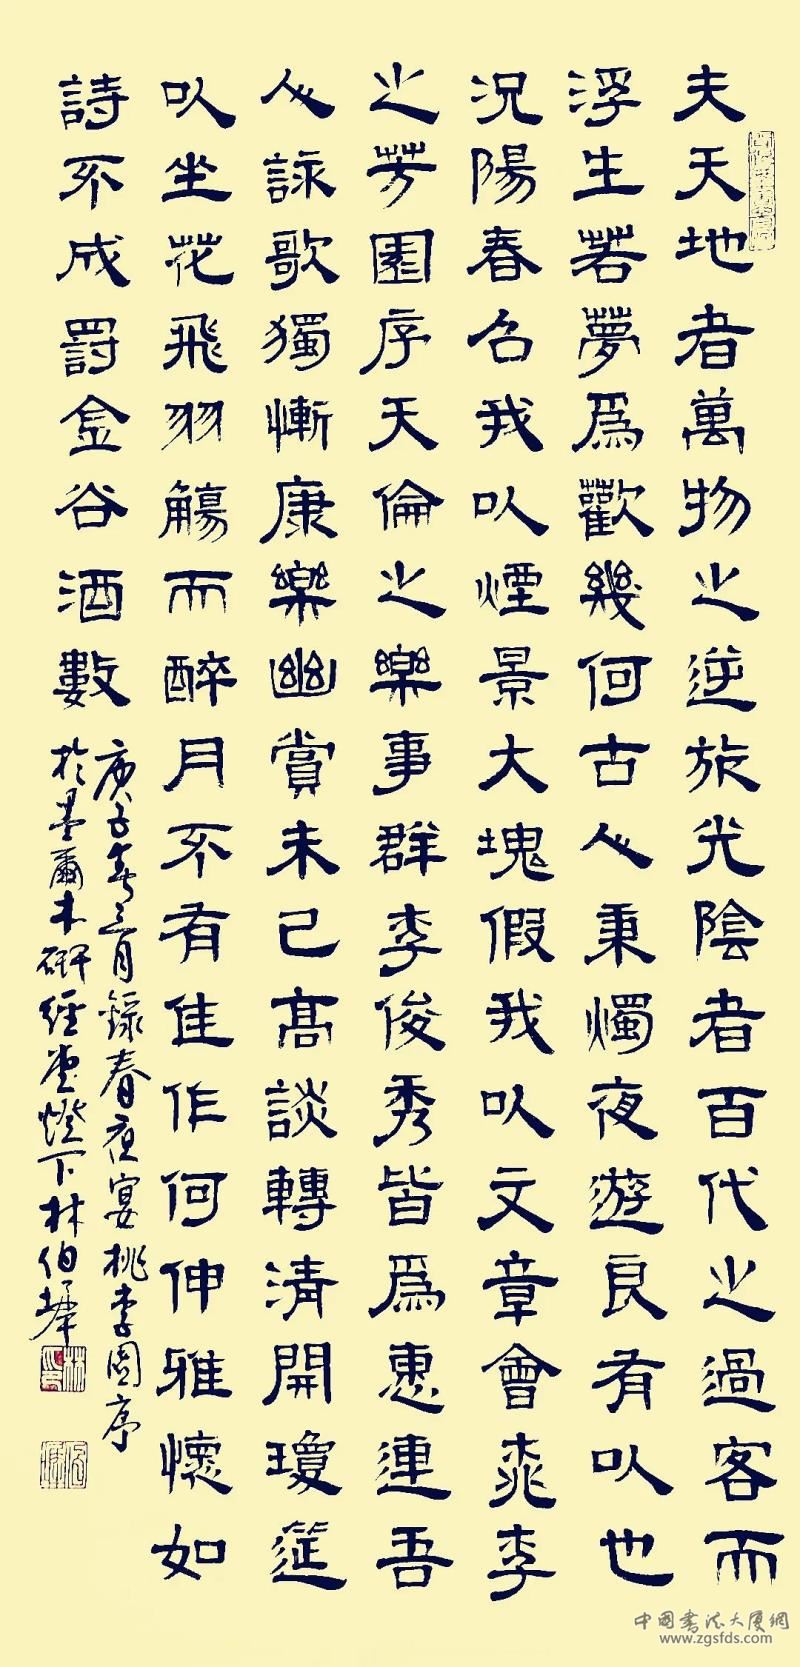 夫天地者萬物之逆旅光陰者百代之過客而
浮生若夢爲歡幾何古人秉燭夜遊良有以也
況陽春召我以煙景大塊假我以文章會桃李
之芳園序天倫之樂事群季俊秀皆爲惠連吾
人詠歌獨慚康樂幽賞未已高談轉清開瓊筵
以坐花飛羽觴而醉月不有佳作何伸雅懷如
詩不成罰金谷酒數
庚子春三月錄春夜宴桃李園序
於墨爾本研經堂燈下林伯墀
中國書法大厦網
www.zgsfds.com